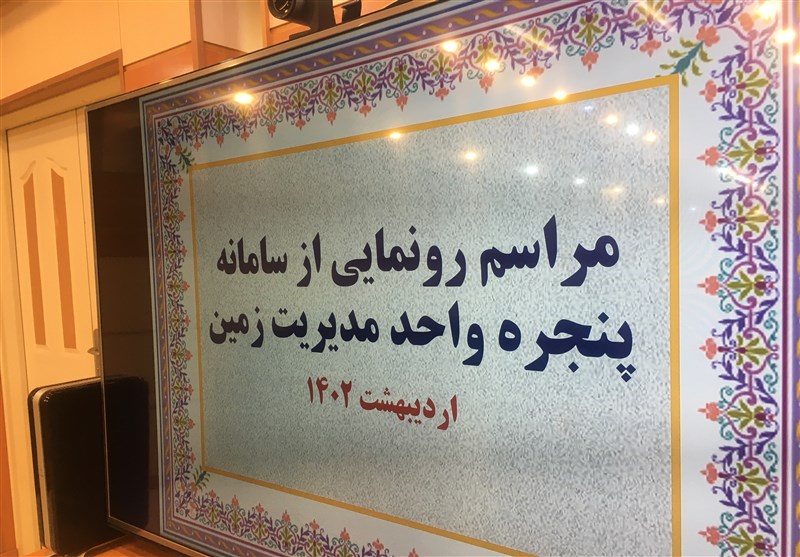 مراسم رونمایی از سامانه
پنجره واحد مدیریت زمین
اردیبهشت ۱۴۰۲